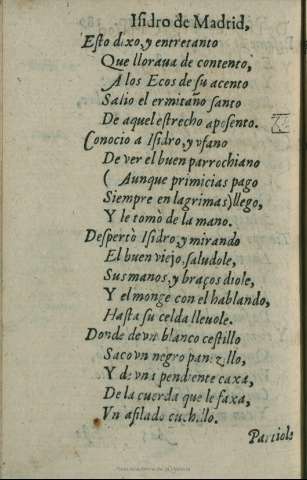 Isidro de Madrid,
Esto dixo, y entretanto
Que lloraua de contento,
A los Ecos de su acento
Salio el ermitaño santo
De aquel estrecho aposento.
Conocio a Isidro, y vfano
De ver el buen parrochiano
( Aunque primicias pago
Siempre en lagrimas) llego,
Y le tomò de la mano.
Despertò Isidro, y mirando
El buen viejo, saludole,
Sus manos, y braços diole,
Y el monge con el hablando,
Hasta su celda lleuole.
Donde de vn blanco cestillo
Saco vn negro panezillo,
Y de vna pendiente caxa,
De la cuerda que le faxa,
Vn afilado cuchillo.
Partiole